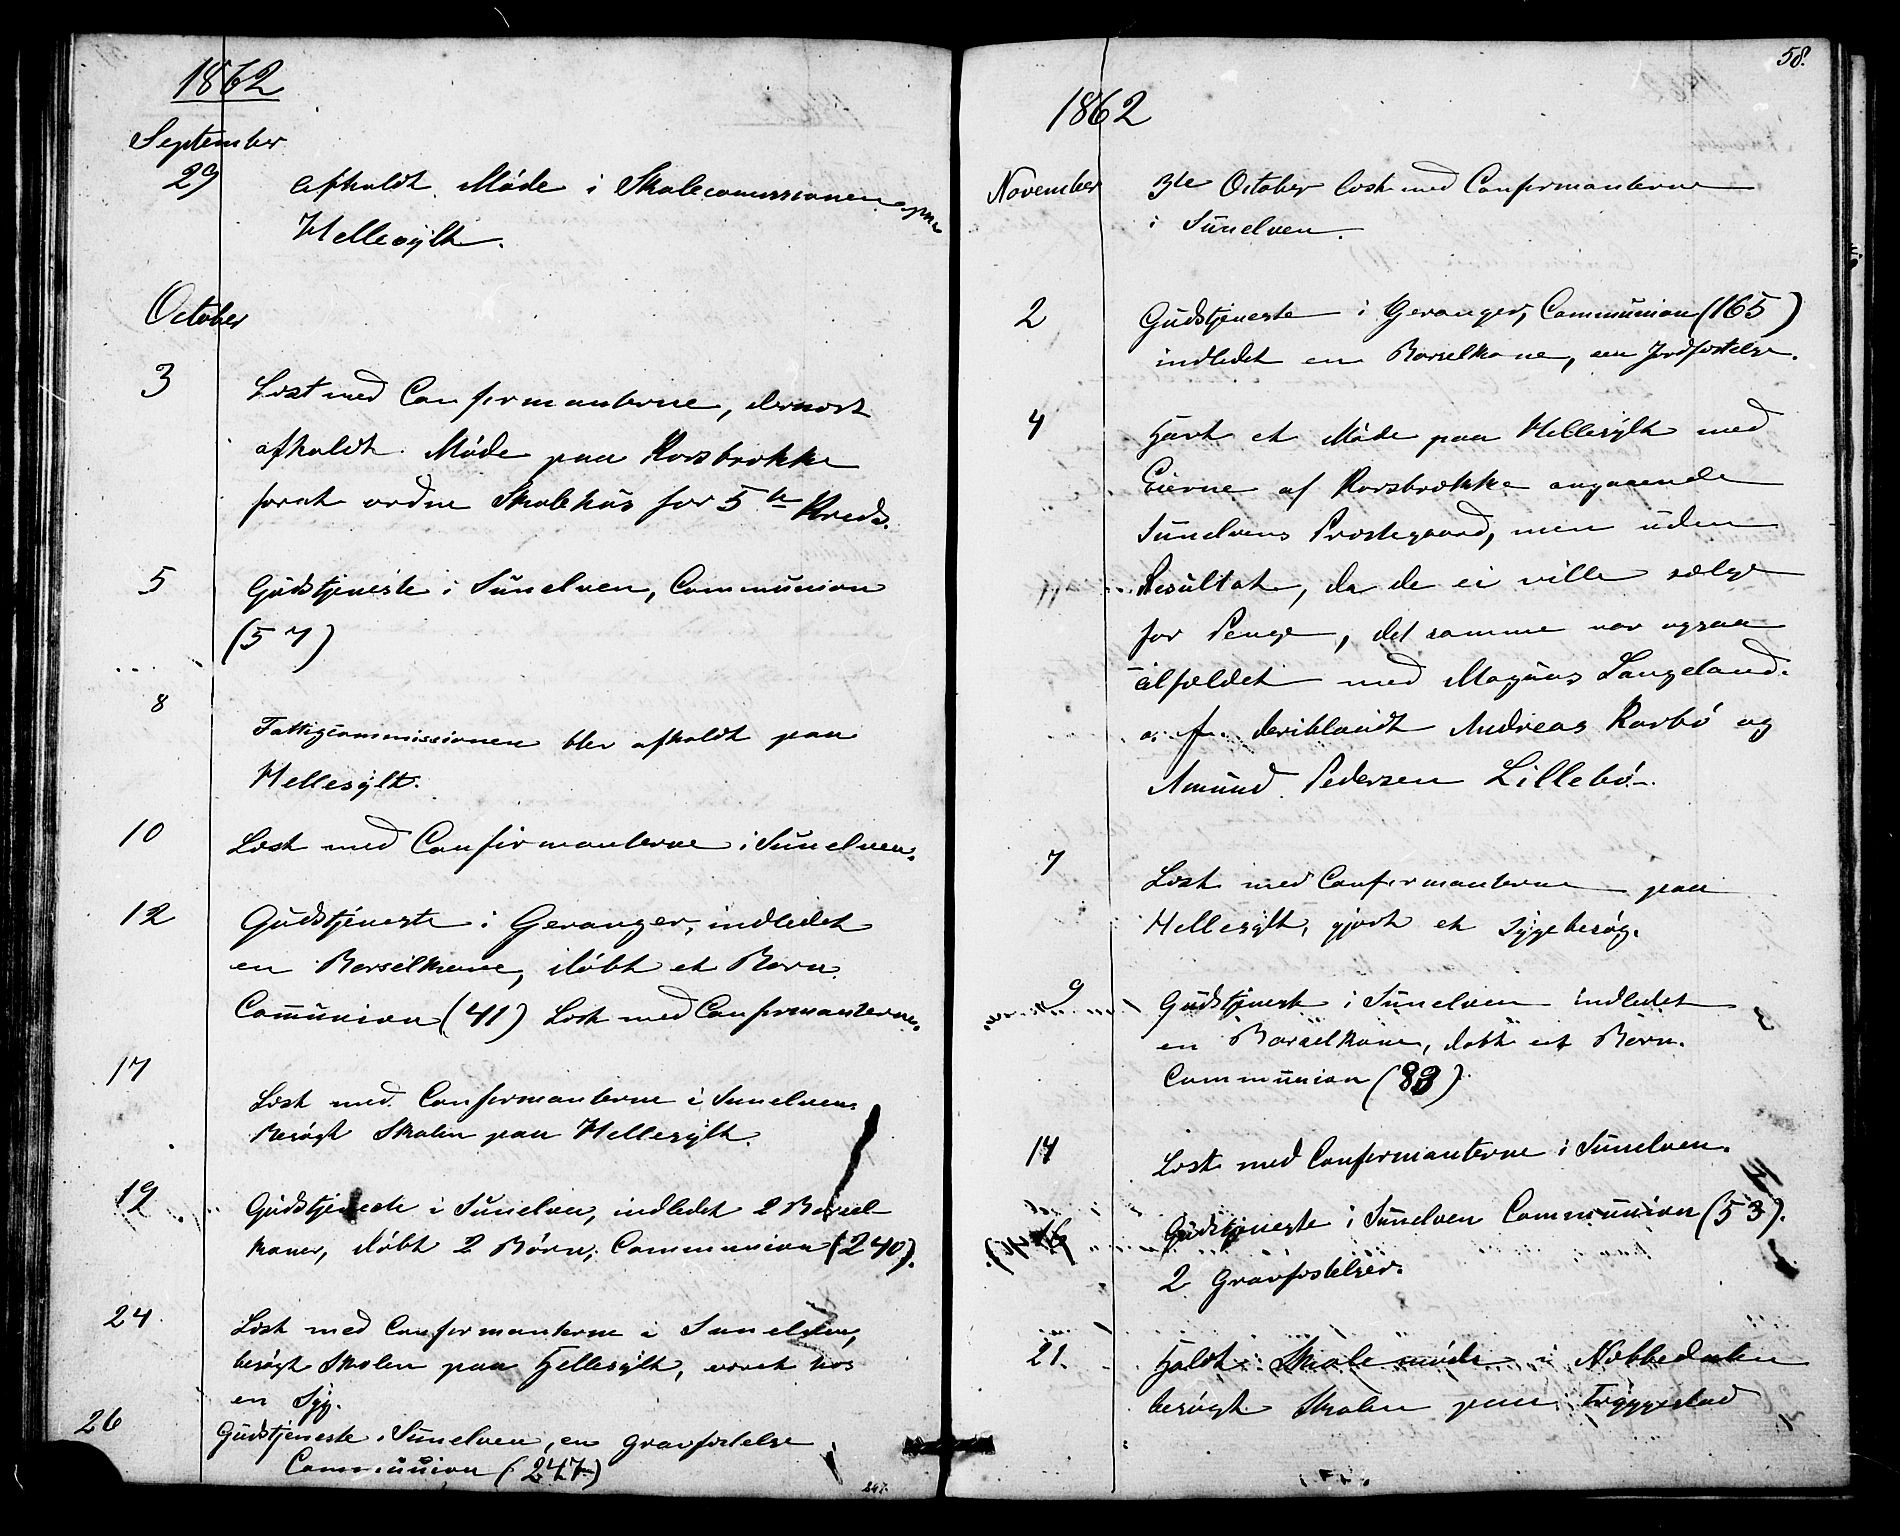 1862
September
29 Afholdt Møde i Skolecommissionen paa
Hellesylt.
October
3 Læst med Confirmanterne, dernæst
afholdt Møde paa Korsbrække
forat ordne Skolehus for 5te Kreds.
5 Gudstjeneste i Sunelven, Communion
(57)
8 Fattigcommissionen blev afholdt paa
Hellesylt.
10 Læst med Confirmanterne i Sunelven.
12 Gudstjeneste i Geranger, indledet
en Barselkone, døbt et Barn.
Communion (41) Læst med Confirmanterne.
17 Læst med Confirmanterne i Sunelven.
Besøgt Skolen paa Hellesylt.
19 Gudstjeneste i Sunelven, indledet 2 Barsel
koner, døbt 2 Børn, Communion (240).
24 Læst med Confirmanterne i Sunelven,
besøgt Skolen paa Hellesylt, været hos
en Syg.
26 Gudstjeneste i Sunelven, en Gravfæstelse
Communion (247)
247.
58.
1862
November 3die October læst med Confirmanterne
i Sunelven.
2 Gudstjeneste i Geranger, Communion (165)
indledet en Barselkone, een Jordfæstelse.
4 Havt et Møde paa Hellesylt med
Eierne af Korsbrække angaaende
Sunelvens Præstegaard, men uden
Resultat, da de ei ville sælge
for Penge, det samme var ogsaa
Tilfældet med Magnus Langeland.
o. fl. deriblandt Andreas Korbø og
Amund Pedersen Lillebø.
7 Læst med Confirmanterne paa
Hellesylt, gjort et Sygebesøg.
9 Gudstjenest i Sunelven indledet
en Barselkone, døbt et Barn.
Communion (83)
14 Læst med Confirmanterne i Sunelven.
16 Gudstjeneste i Sunelven Communion (53).
2 Gravfæstelser.
21. Holdt Skolemøde i Nibbedalen
besøgt Skolen paa Tryggestad